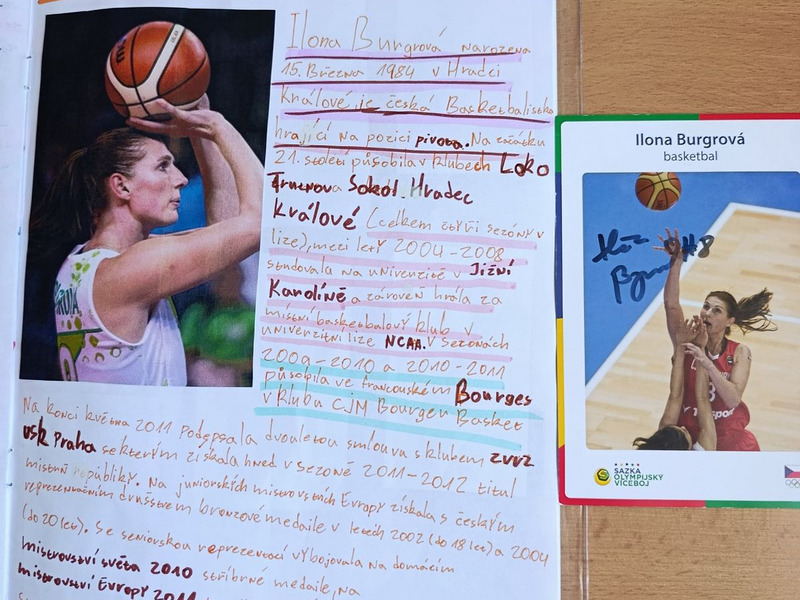 Ilona Burgrová narozena
15. Března 1984 v Hradci
Králové, je česká Basketbalistka
hrající na pozici pivota. Na začátku
21. století působila v klubech Loko
Trutnov a Sokol Hradec
Králové (celkem čtyři sezóny v
lize), mezi lety 2004-2008
studovala na univerzitě v Jižní
Karolíně a zároveň hrála za
místní basketbalový klub v
univerzitní lize NCAA. V sezonách
2009-2010 a 2010-2011
působila ve francouzském Bourges
v klubu CJM Bourges Basket
Na konci května 2011 Podepsala dvouletou smlouvu s klubem ZVVZ
USK Praha se kterým získala hned v sezoně 2011-2012 titul
mistryň republiky. Na juniorských mistrovstvích Evropy získala s českým
reprezentačním družstvem bronzové medaile v letech 2002 (do 18 let) a 2004
(do 20 let). Se seniorskou reprezentací vybojovala na domácím
mistrovství světa 2010 stříbrné medaile, na
mistrovství Evropy 2011
Ilona Burgrová
basketbal
#8
SAZKA
OLYMPIJSKÝ
VÍCEBOJ